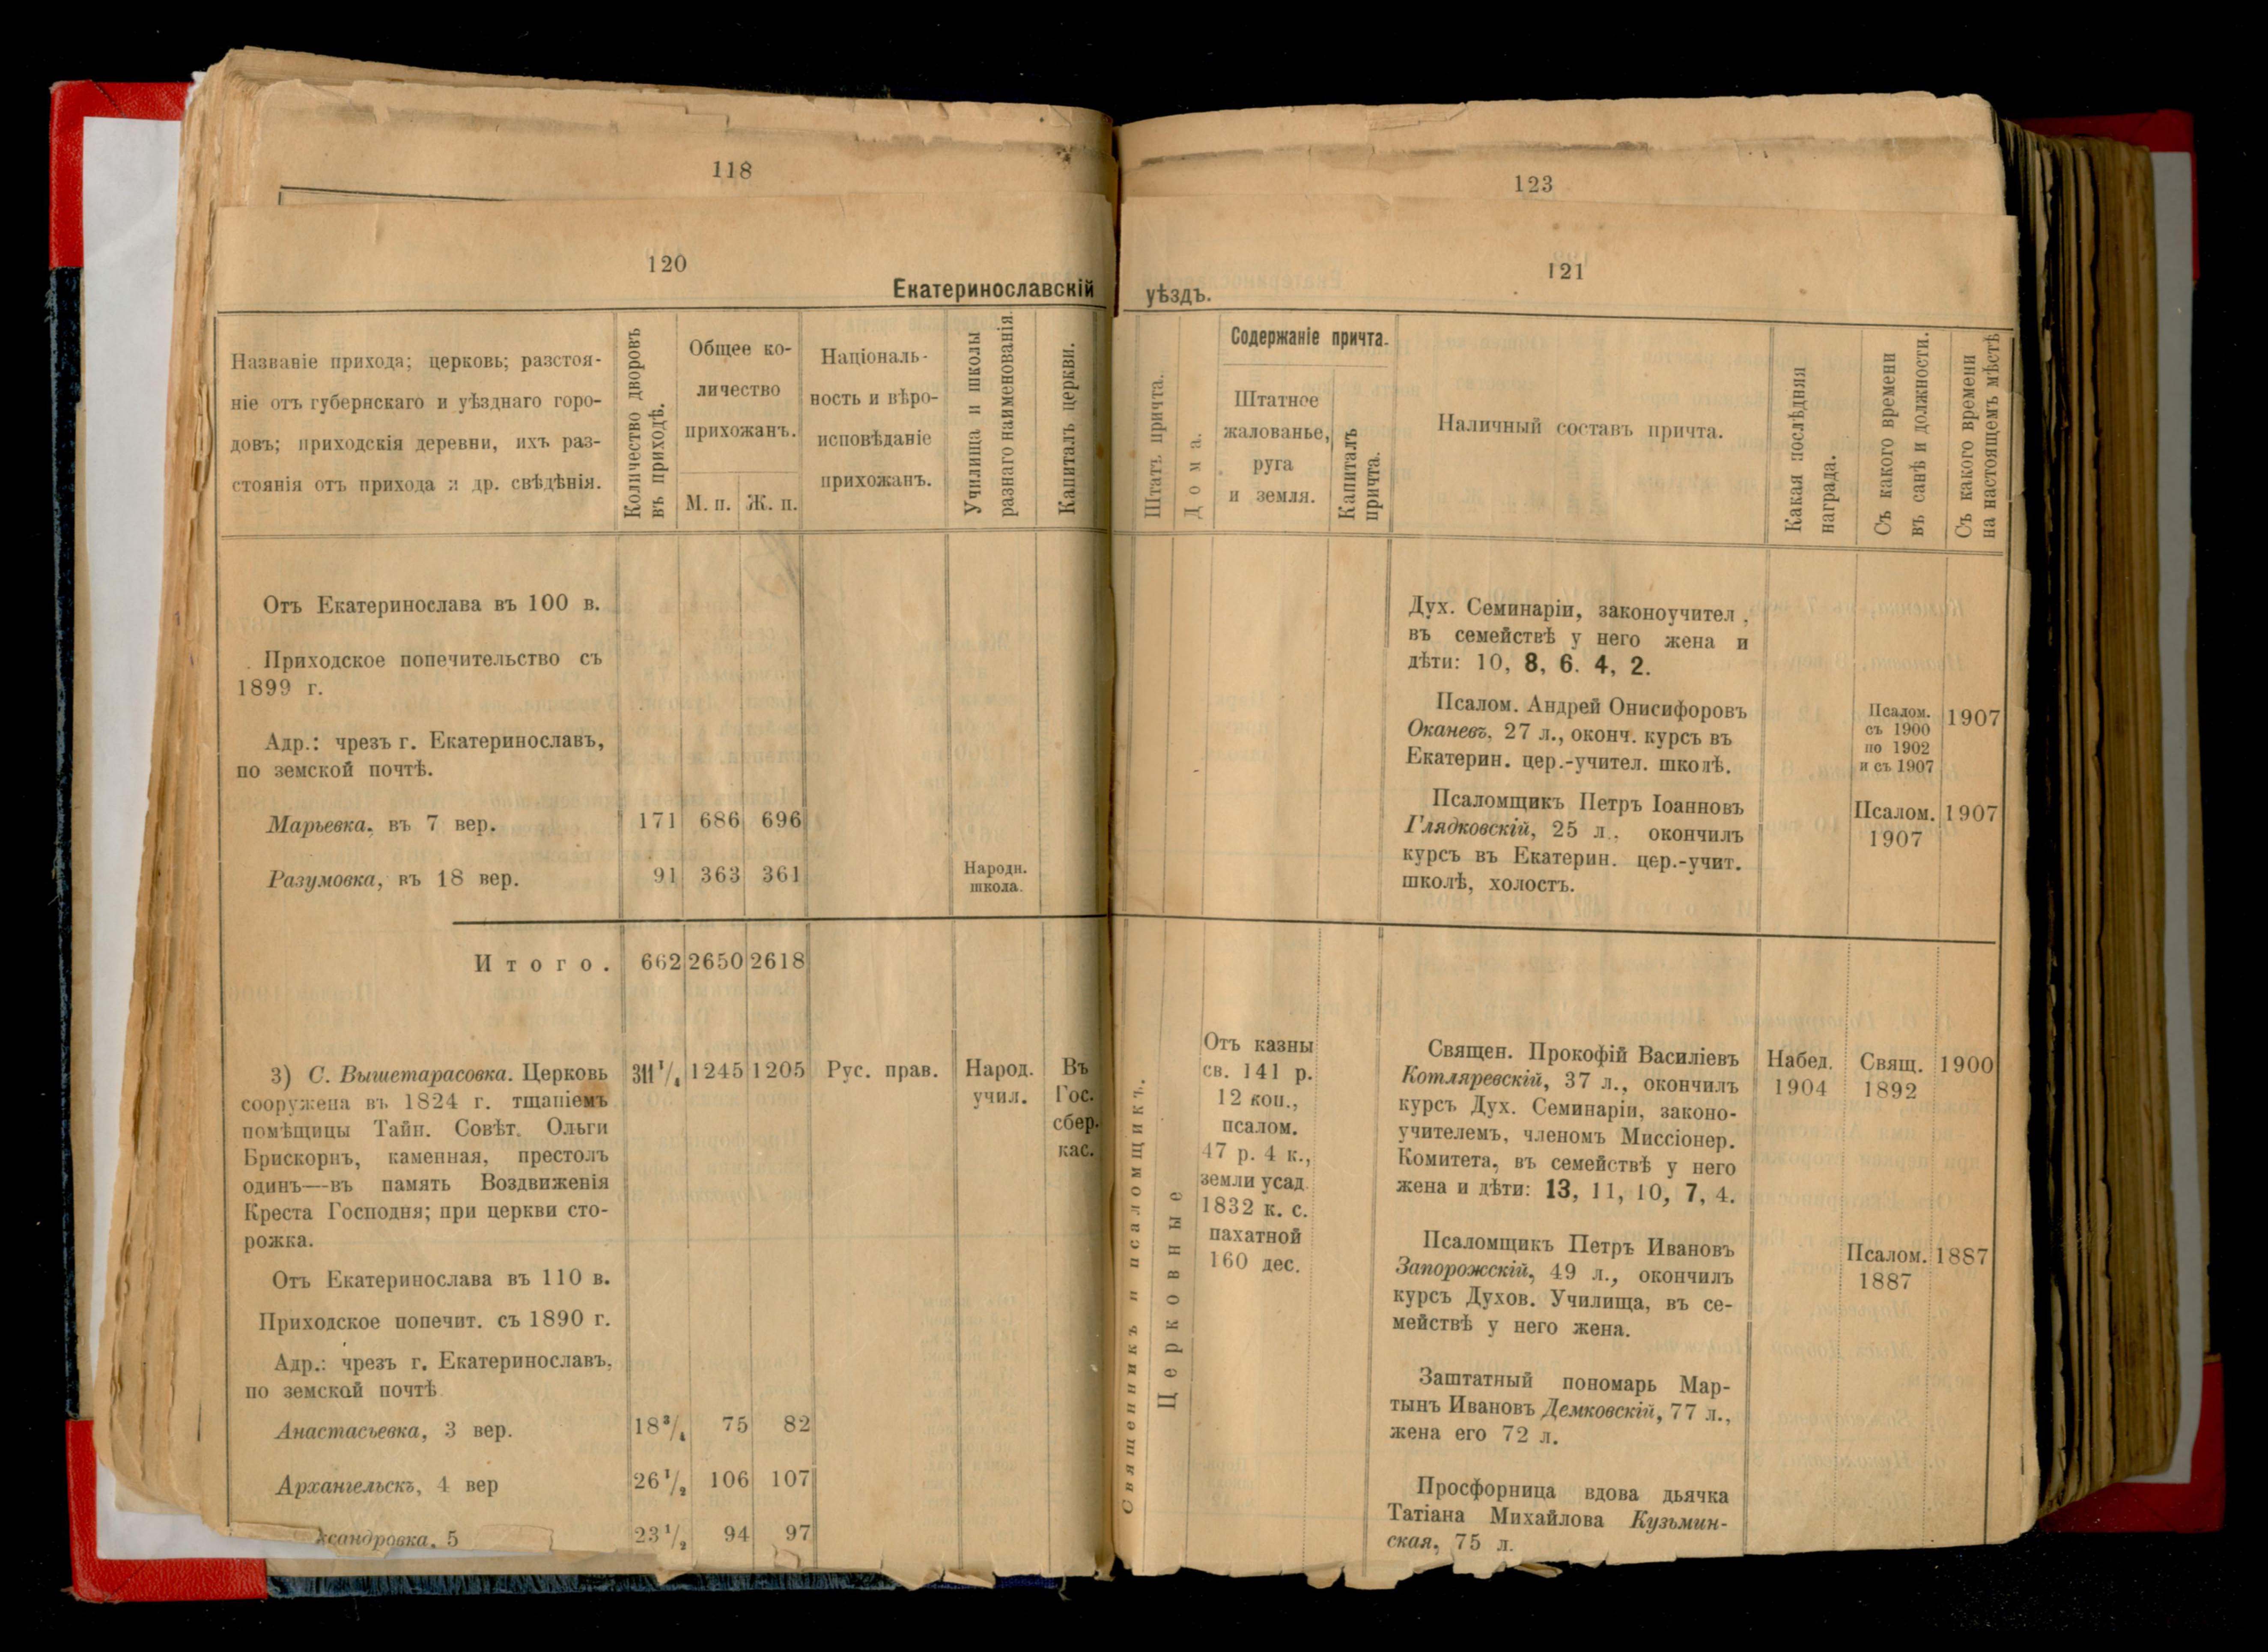 118
120
Екатеринославскій
Названіе прихода; церковь; разстоя-
ніе отъ губернскаго и уѣзднаго горо-
довъ; приходскія деревни, ихъ раз-
стоянія отъ прихода и др. свѣдѣнія.
Количество дворовъ
въ приходѣ.
Общее ко-
личество
прихожанъ.
М. п. Ж. п.
Національ-
ность и вѣро-
исповѣданіе
прихожанъ.
Училища и школы
разнаго наименованія.
Капиталъ церкви.
Отъ Екатеринослава въ 100 в.
Приходское попечительство съ
1899 г.
Адр.: чрезъ г. Екатеринославъ,
по земской почтѣ.
Марьевка, въ 7 вер. 171 686 696
Разумовка, въ 18 вер. 91 363 361
Народн.
школа.
Итого. 662 2650 2618
3) С. Вышетарасовка. Церковь 311 1/4 1245 1205 Рус. прав.
сооружена въ 1824 г. тщаніемъ
помѣщицы Тайн. Совѣт. Ольги
Брискорнъ, каменная, престолъ
одинъ—въ память Воздвиженія
Креста Господня; при церкви сто-
рожка.
Народ.
учил.
Въ
Гос.
сбер.
кас.
Отъ Екатеринослава въ 110 в.
Приходское попечит. съ 1890 г.
Адр.: чрезъ г. Екатеринославъ,
по земской почтѣ
Анастасьевка, 3 вер. 18 3/4 75 82
Архангельскъ, 4 вер 26 1/2 106 107
ксандровка, 5 23 1/2 94 97
123
121
уѣздъ.
Штатъ причта.
Дома.
Содержаніе причта.
Штатное
жалованье,
руга
и земля.
Капиталъ
причта.
Наличный составъ причта.
Какая послѣдняя
награда.
Съ какого времени
въ санѣ и должности.
Съ какого времени
на настоящемъ мѣстѣ
Дух. Семинаріи, законоучител,
въ семействѣ у него жена и
дѣти: 10, 8, 6. 4, 2.
Псалом. Андрей Онисифоровъ
Оканевъ, 27 л., оконч. курсъ въ
Екатерин. цер.-учител. школѣ.
Псалом.
съ 1900
по 1902
и съ 1907
1907
Псаломщикъ Петръ Іоанновъ
Глядковскій, 25 л., окончилъ
курсъ въ Екатерин. цер.-учит.
школѣ, холостъ.
Псалом.
1907
1907
Священникъ и псаломщикъ.
Церковные
Отъ казны
св. 141 р.
12 коп.,
псалом.
47 р. 4 к.,
земли усад.
1832 к. с.
пахатной
160 дес.
Священ. Прокофій Василіевъ
Котляревскій, 37 л., окончилъ
курсъ Дух. Семинаріи, законо-
учителемъ, членомъ Миссіонер.
Комитета, въ семействѣ у него
жена и дѣти: 13, 11, 10, 7, 4.
Набед.
1904
Свящ.
1892
1900
Псаломщикъ Петръ Ивановъ
Запорожскій, 49 л., окончилъ
курсъ Духов. Училища, въ се-
мействѣ у него жена.
Псалом.
1887
1887
Заштатный пономарь Мар-
тынъ Ивановъ Демковскій, 77 л.,
жена его 72 л.
Просфорница вдова дьячка
Татіана Михайлова Кузьмин-
ская, 75 л.